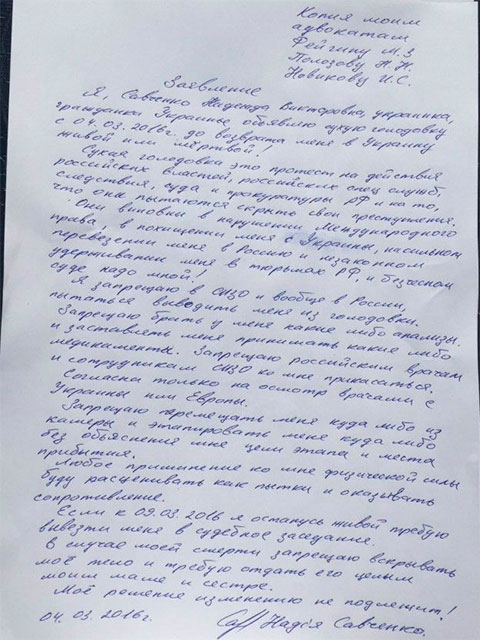 Копия моим
адвокатам
Фейгину М.З
Полозову Н.Н.
Новикову И.С.
Заявление
Я, Савченко Надежда Викторовна, украинка,
гражданка Украины, обьявляю сухую голодовку
с 04.03.2016г. до возврата меня в Украину
живой или мёртвой!
Сухая голодовка это протест на действия
российских властей, российских спец служб,
следствия, суда и прокуратуры РФ и на то,
что они пытаются скрыть свои преступления.
Они виновны в нарушении Международного
права, в похищении меня с Украины, насильном
перевезении меня в Россию и незаконном
удерживании меня в тюрьмах РФ, и безчесном
суде надо мной!
Я запрещаю в СИЗО и вообще в России,
пытаться выводить меня из голодовки.
Запрещаю брать у меня какие либо анализы
и заставлять меня принимать какие либо
медикаменты. Запрещаю российским врачам
и сотрудникам СИЗО ко мне прикасаться.
Согласна только на осмотр врачами с
Украины или Европы.
Запрещаю перемещать меня куда либо из
камеры и этапировать меня куда либо
без обьяснения мне цели этапа и места
прибытия.
Любое применение ко мне физической силы
буду расценивать как пытки и оказывать
сопротивление.
Если к 09.03.2016 я останусь живой требую
вывезти меня в судебное заседание.
В случае моей смерти запрещаю вскрывать
моё тело и требую отдать его целым
моим маме и сестре.
Моё решение изменению не подлежит!
04.03.2016г. Надія Савченко